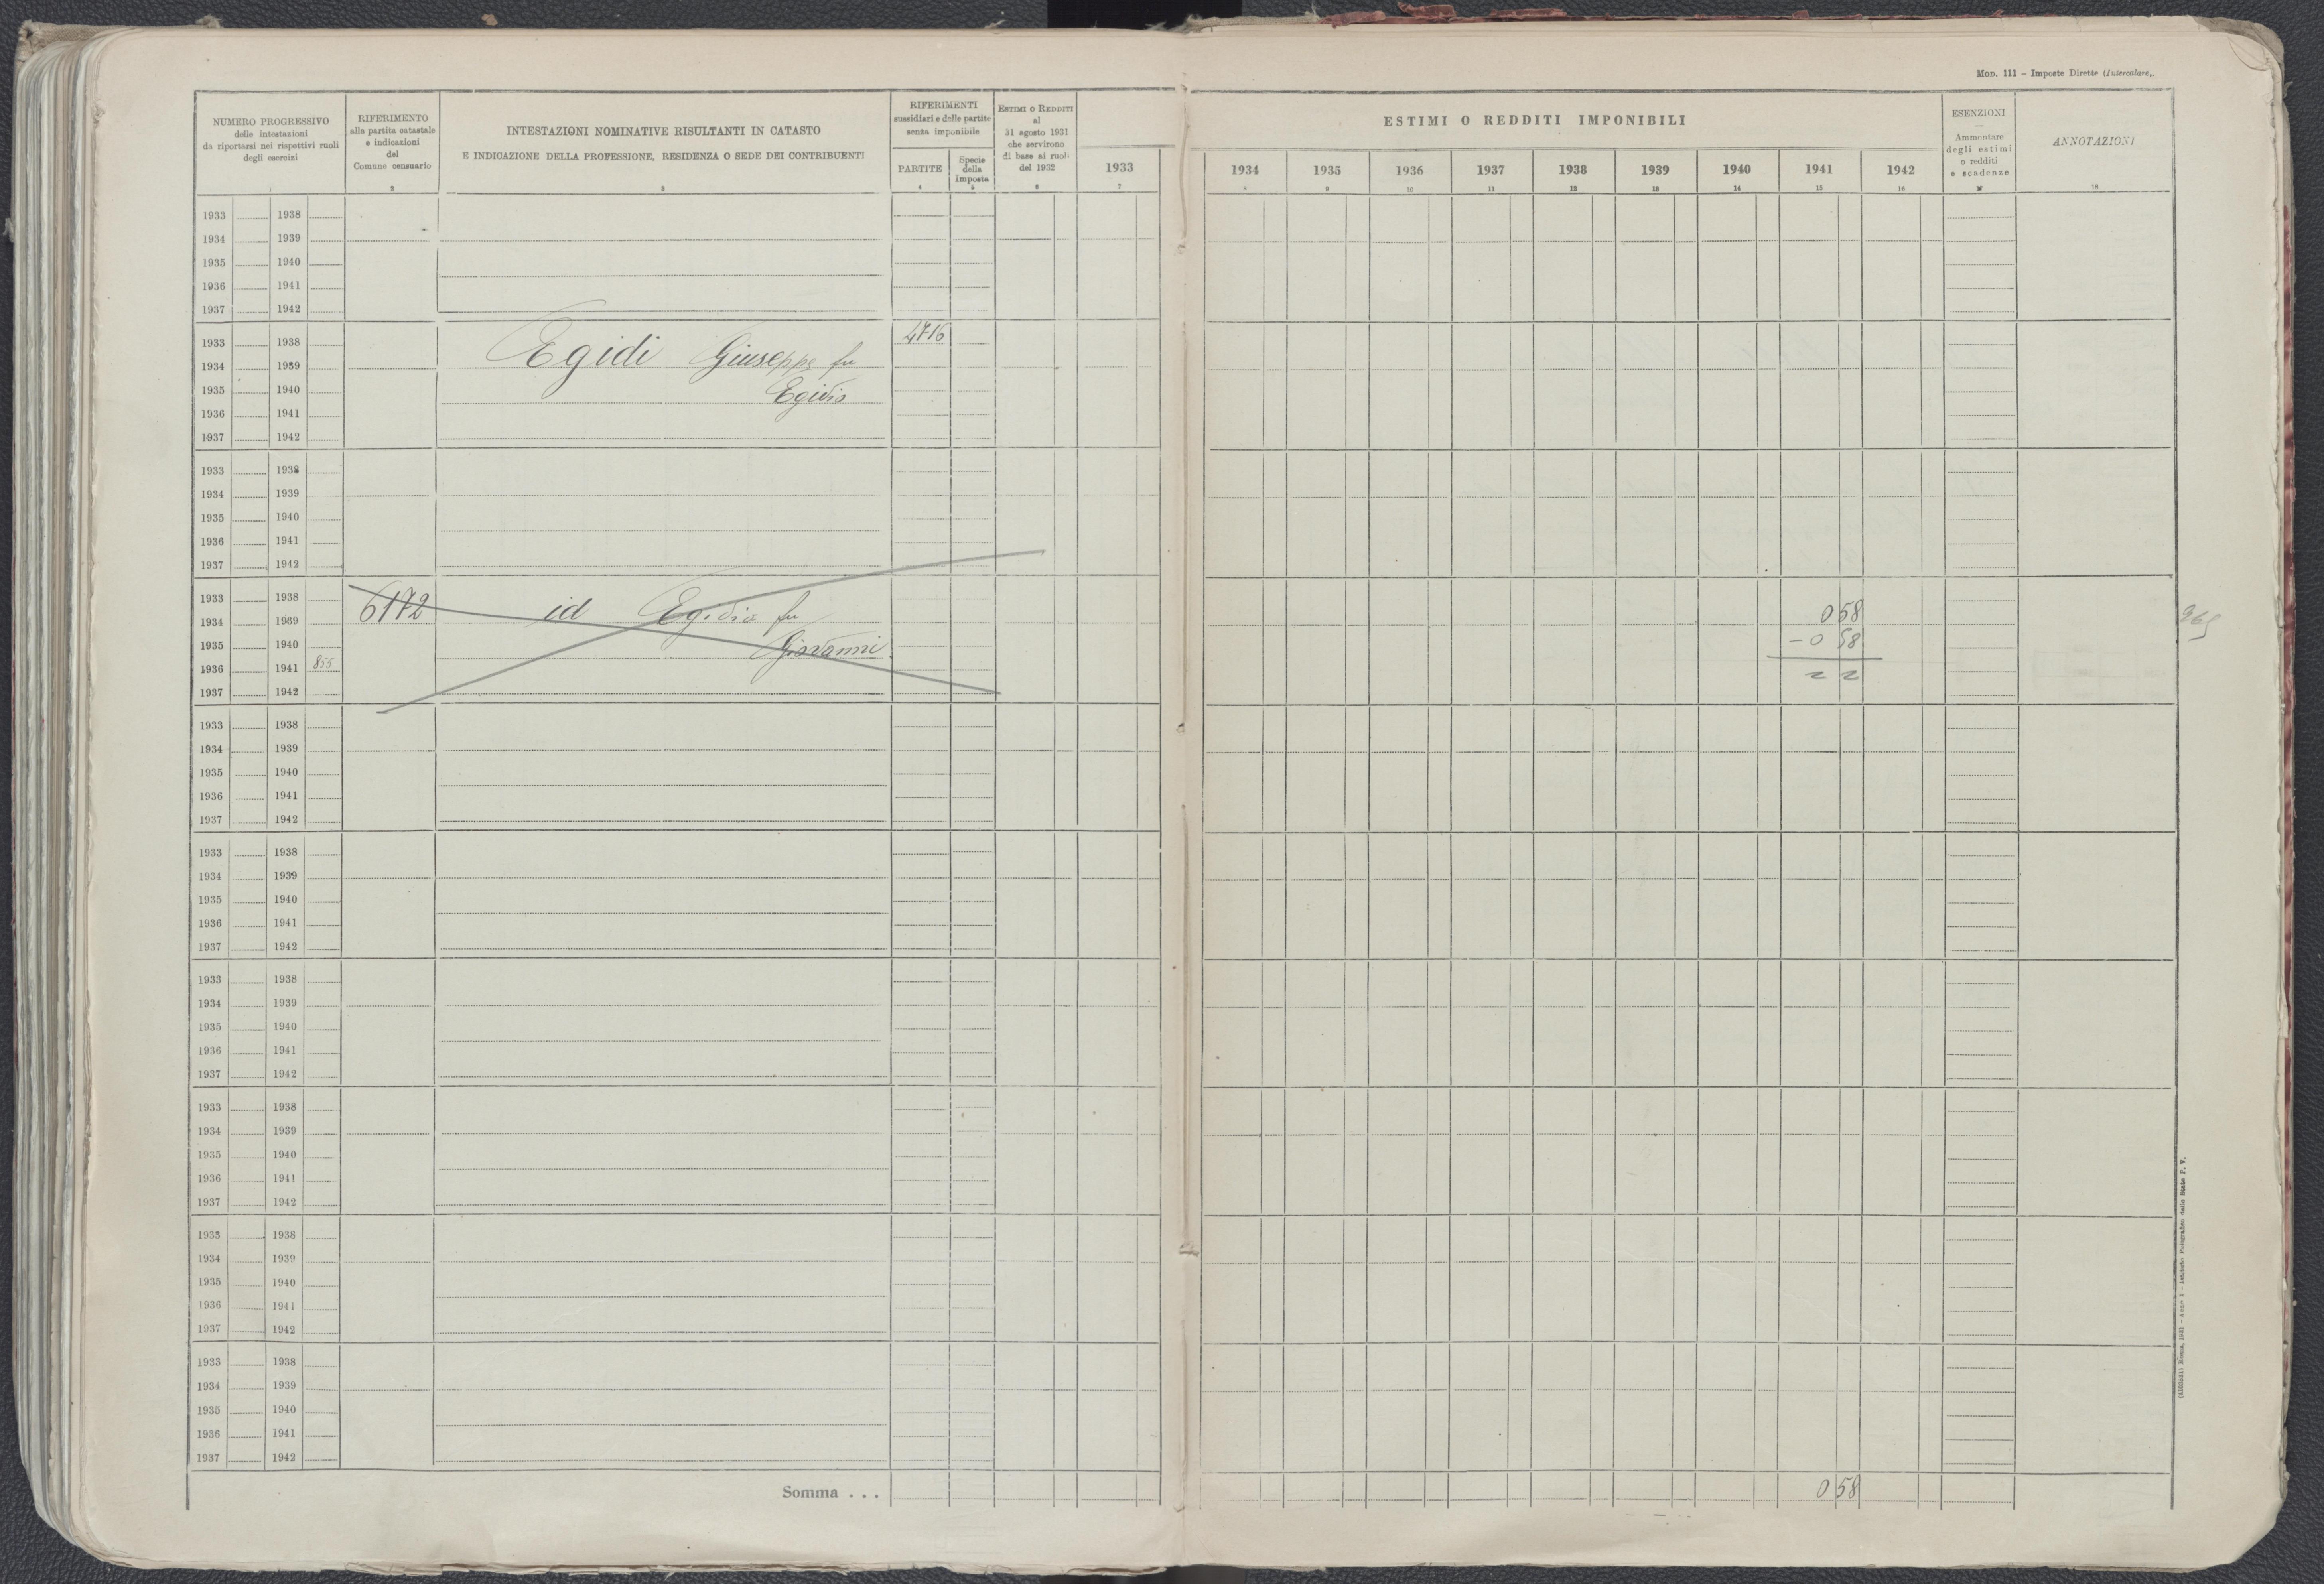 Mod. 111 – Imposte Dirette (Intercalare).
NUMERO PROGRESSIVO
delle intestazioni
da riportarsi nei rispettivi ruoli
degli esercizi
1
RIFERIMENTO
alla partita catastale
e indicazioni
del
Comune censuario
2
INTESTAZIONI NOMINATIVE RISULTANTI IN CATASTO
E INDICAZIONE DELLA PROFESSIONE, RESIDENZA O SEDE DEI CONTRIBUENTI
3
RIFERIMENTI
sussidiari e delle partite
senza imponibile
PARTITE
4
Specie
della
Imposta
5
ESTIMI O REDDITI
al
31 agosto 1931
che servirono
di base ai ruoli
del 1932
6
1933
7
ESTIMI O REDDITI IMPONIBILI
1934 1935 1936 1937 1938 1939 1940 1941 1942
8 9 10 11 12 13 14 15 16
ESENZIONI
—
Ammontare
degli estimi
o redditi
e scadenze
17
ANNOTAZIONI
18
1933 1938
1934 1939
1935 1940
1936 1941
1937 1942
1933 1938 4716
1934 1939 Egidi Giuseppe fu
1935 1940 Egidio
1936 1941
1937 1942
1933 1938
1934 1939
1935 1940
1936 1941
1937 1942
1933 1938
1934 1939 6172 id Egidio fu 0 58
1935 1940 Giovanni – 0 58
1936 1941 855
1937 1942
1933 1938
1934 1939
1935 1940
1936 1941
1937 1942
1933 1938
1934 1939
1935 1940
1936 1941
1937 1942
1933 1938
1934 1939
1935 1940
1936 1941
1937 1942
1933 1938
1934 1939
1935 1940
1936 1941
1937 1942
1933 1938
1934 1939
1935 1940
1936 1941
1937 1942
1933 1938
1934 1939
1935 1940
1936 1941
1937 1942
Somma . . . 0 58